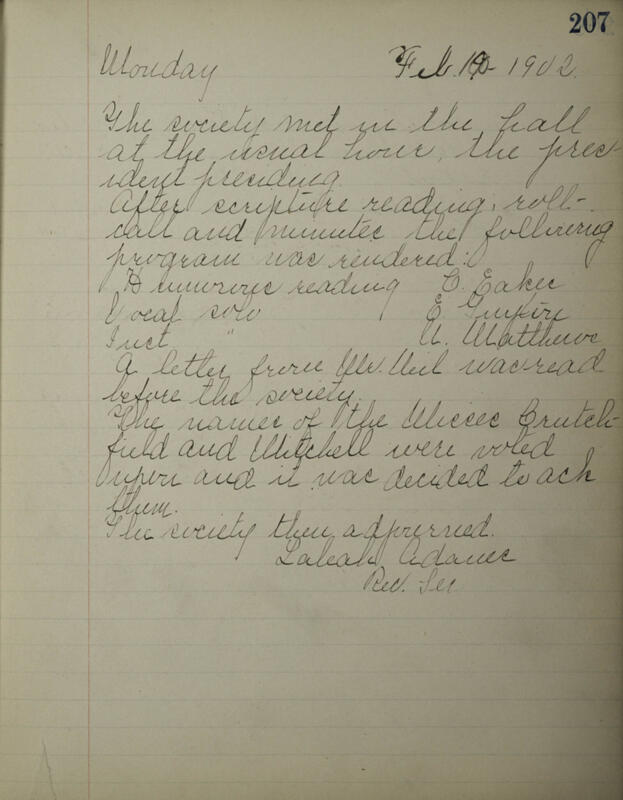 207
Monday Feb. 10 1902.
The society met in the hall
at the usual hour, the pres-
ident presiding.
After scripture reading, roll-
call and minutes the following
program was rendered:
Humorous reading C. Eakes
Vocal solo E.
Inst " U. Matthews
A letter from Mr. Neil was read
before the society.
The names of the Misses Crutch-
field and Mitchell were voted
upon and it was decided to ask
them.
The society then adjourned.
Adams
Rec. Sec